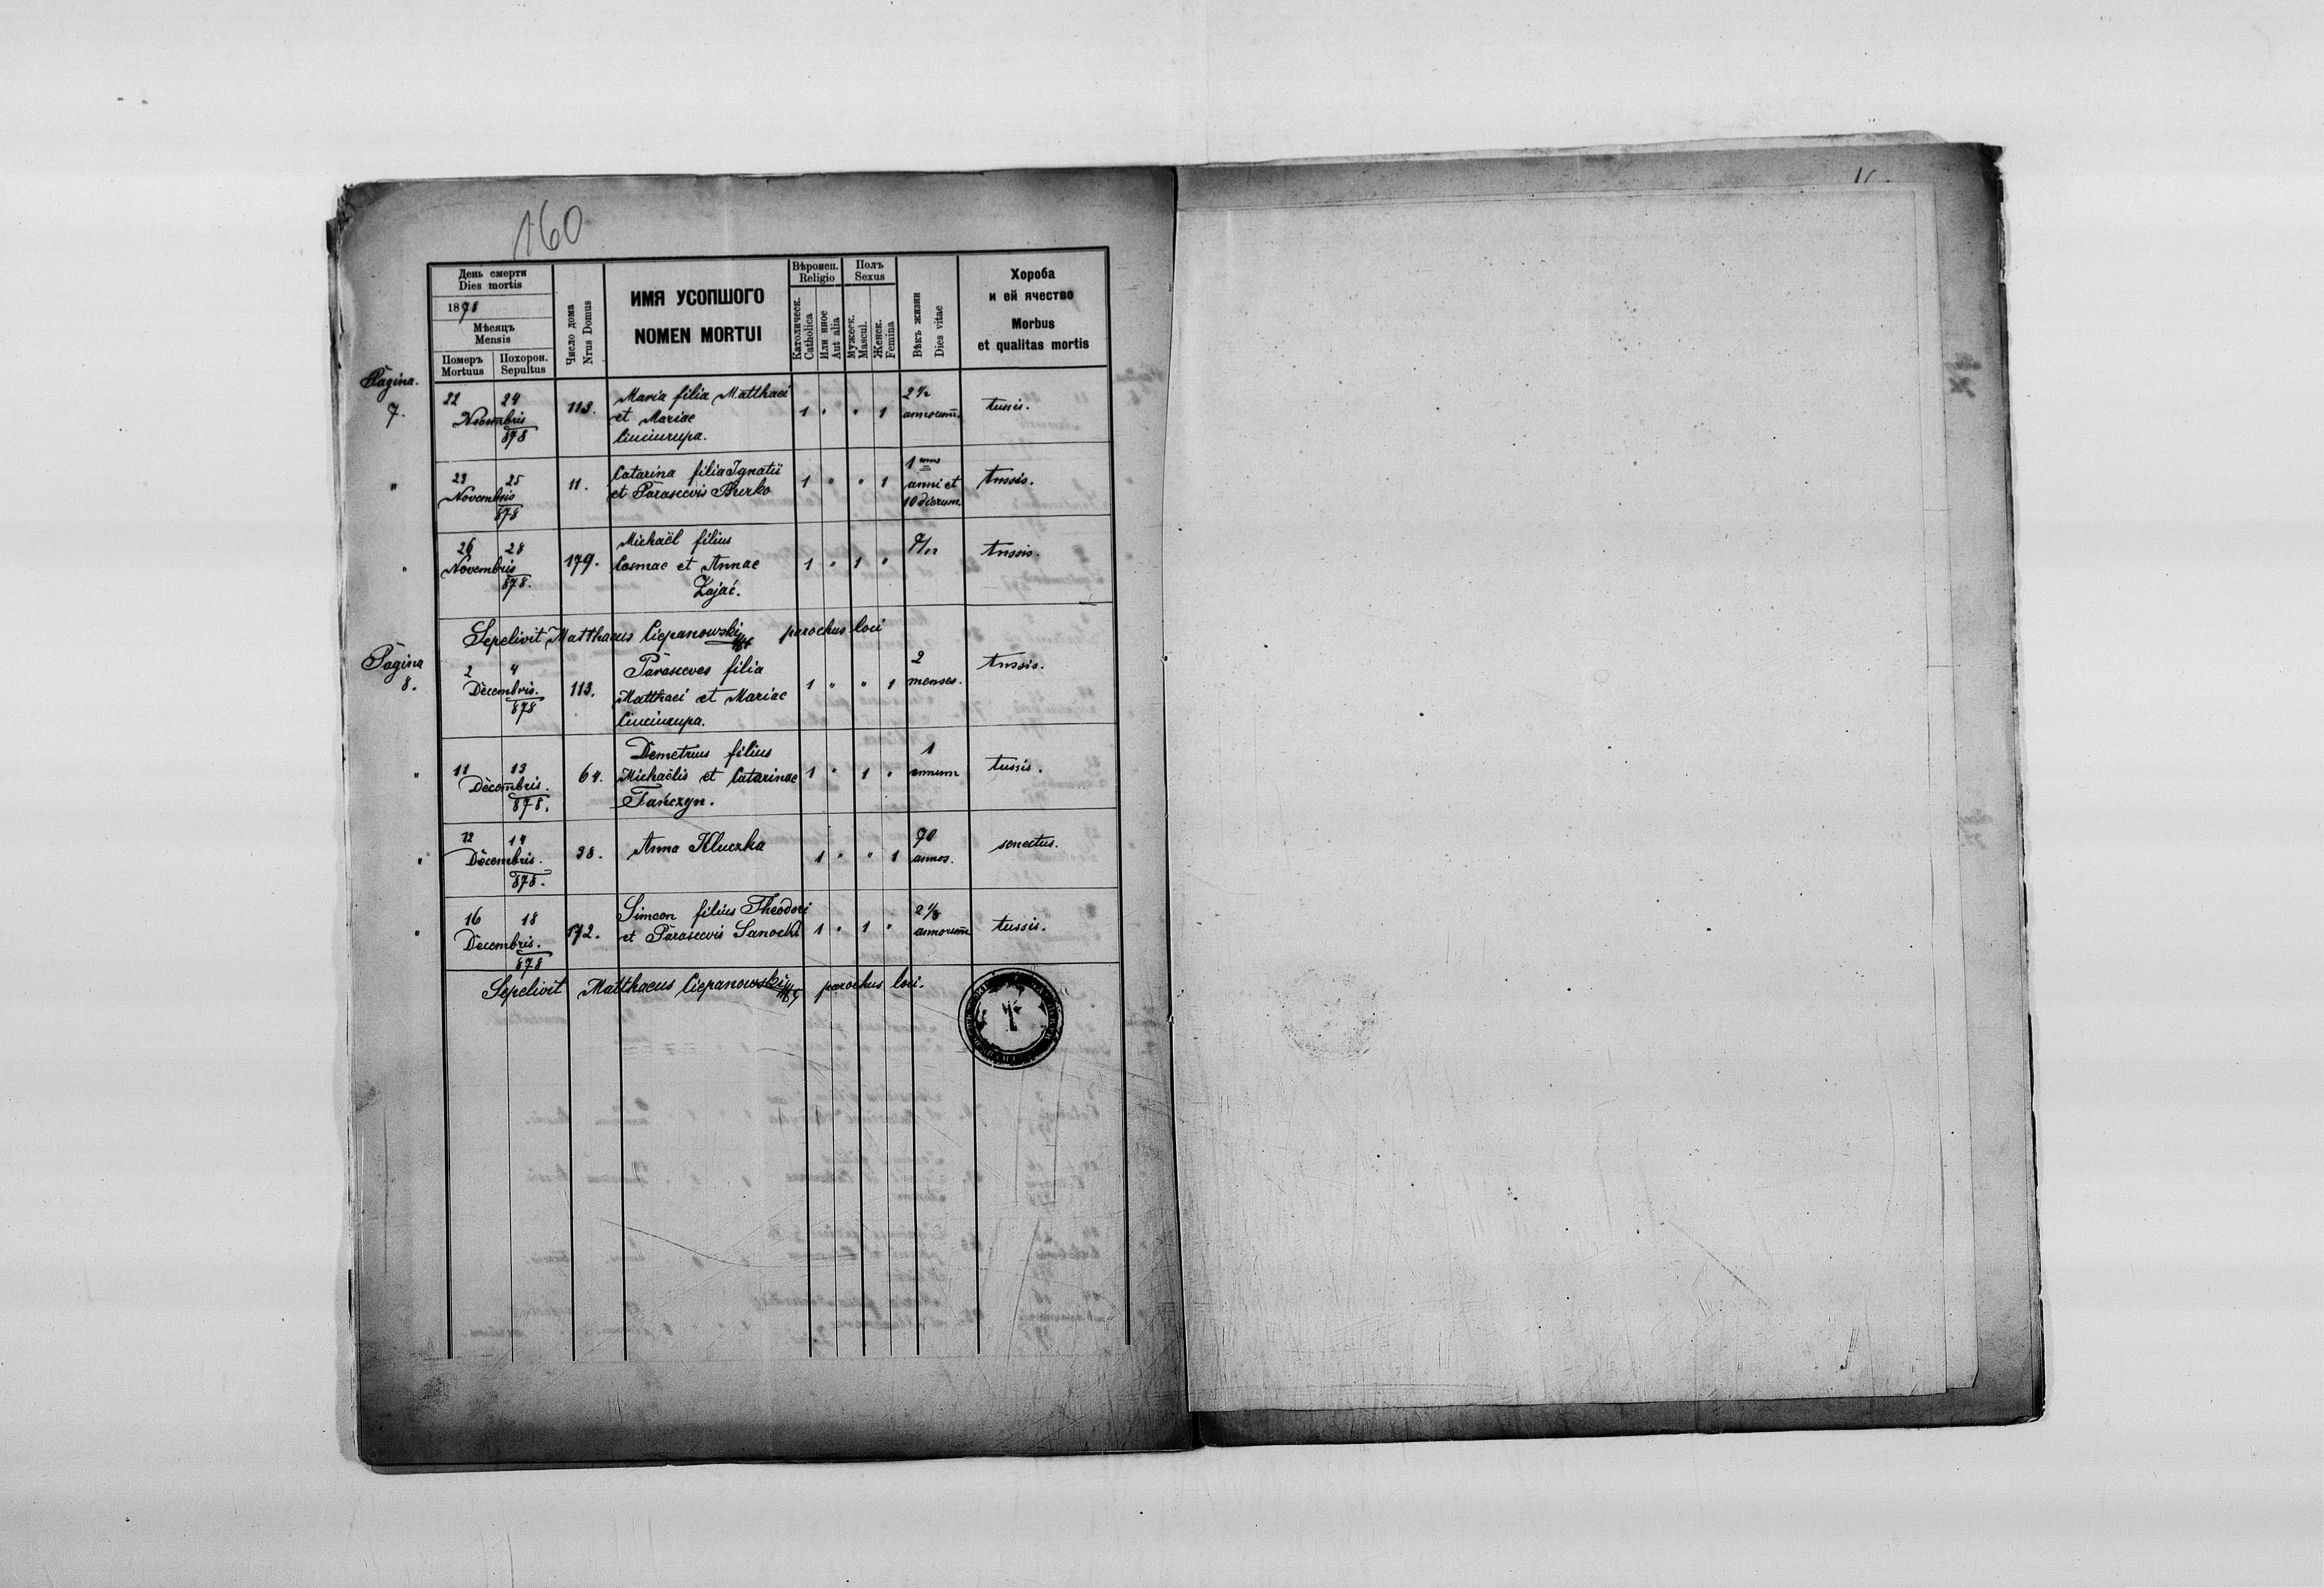 160
День смерти
Dies mortis
1878
Мѣсяцъ
Mensis
Померъ
Mortuus
Похорон.
Sepultus
Число дома
Nrus Domus
ИМЯ УСОПШОГО
NOMEN MORTUI
Вѣроисп.
Religio
Католическ.
Catholica
Или иное
Aut alia
Полъ
Sexus
Мужеск.
Mascul.
Женск.
Femina
Вѣкъ жизни
Dies vitae
Хороба
и ей ячество
Morbus
et qualitas mortis
Pagina.
7.
22 24
Novembris
878
113.
Maria filia Matthaei
et Mariae
Ciuciurupa.
1 " " 1
2 1/2
annorum.
tussis.
"
23 25
Novembris
878
11.
Catarina filia Ignatii
et Parascevis Burko
1 " " 1
1
anni et
10 dierum.
tussis.
"
26 28
Novembris
878.
179.
Michaël filius
Cosmae et Annae
Zając.
1 " 1 "
tussis.
Sepelivit Matthaeus Ciepanowski parochus loci
Pagina
8.
2 4
Decembris.
878
113.
Parasceves filia
Matthaei et Mariae
Ciuciurupa.
1 " " 1
2
menses.
tussis.
"
11 13
Decembris.
878.
64.
Demetrius filius
Michaëlis et Catarinae
Tańczyn.
1 " 1 "
1
annum
tussis.
"
12 14
Decembris.
878.
38.
Anna Kluczka
1 " " 1
70
annos.
senectus.
"
16 18
Decembris.
878
172.
Simeon filius Theodori
et Parascevis Sanocki
1 " 1 "
2 1/3
annorum
tussis.
Sepelivit Matthaeus Ciepanowski parochus loci.